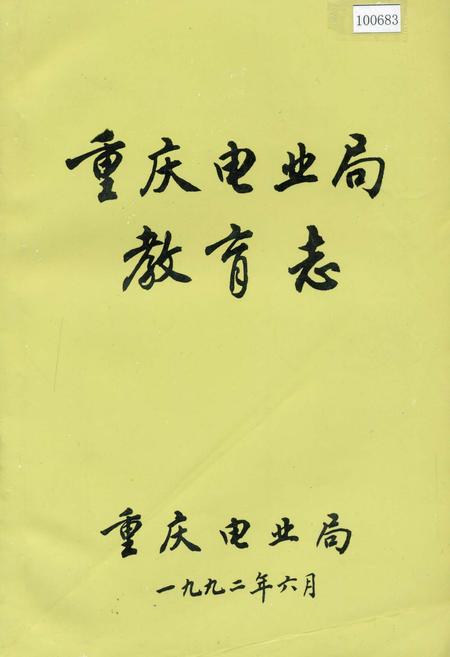 100683
重庆电业局
教育志
重庆电业局
一九九二年六月